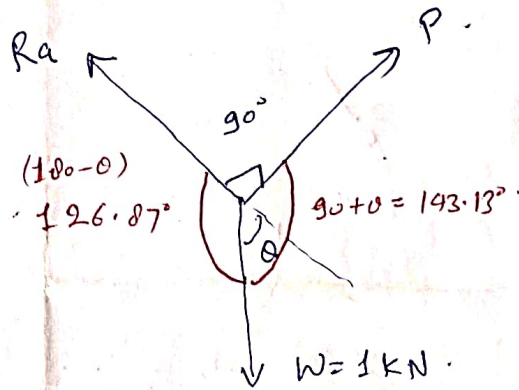 P.
Ra
90°
(180-θ)
126.87°
90+θ = 143.13°
θ
W=1KN.